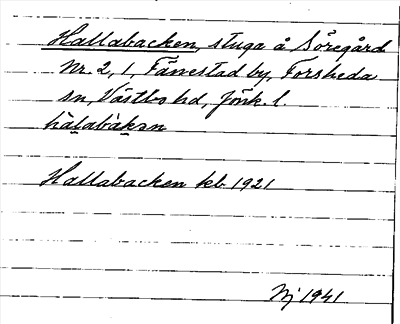 Hallabacken, stuga å Söregård
Nr. 2, 1, Fännestad by, Forsheda
sn, Västbo hd, Jönk. l.
hàlabàkən
Hallabacken kb 1921
Nj 1941